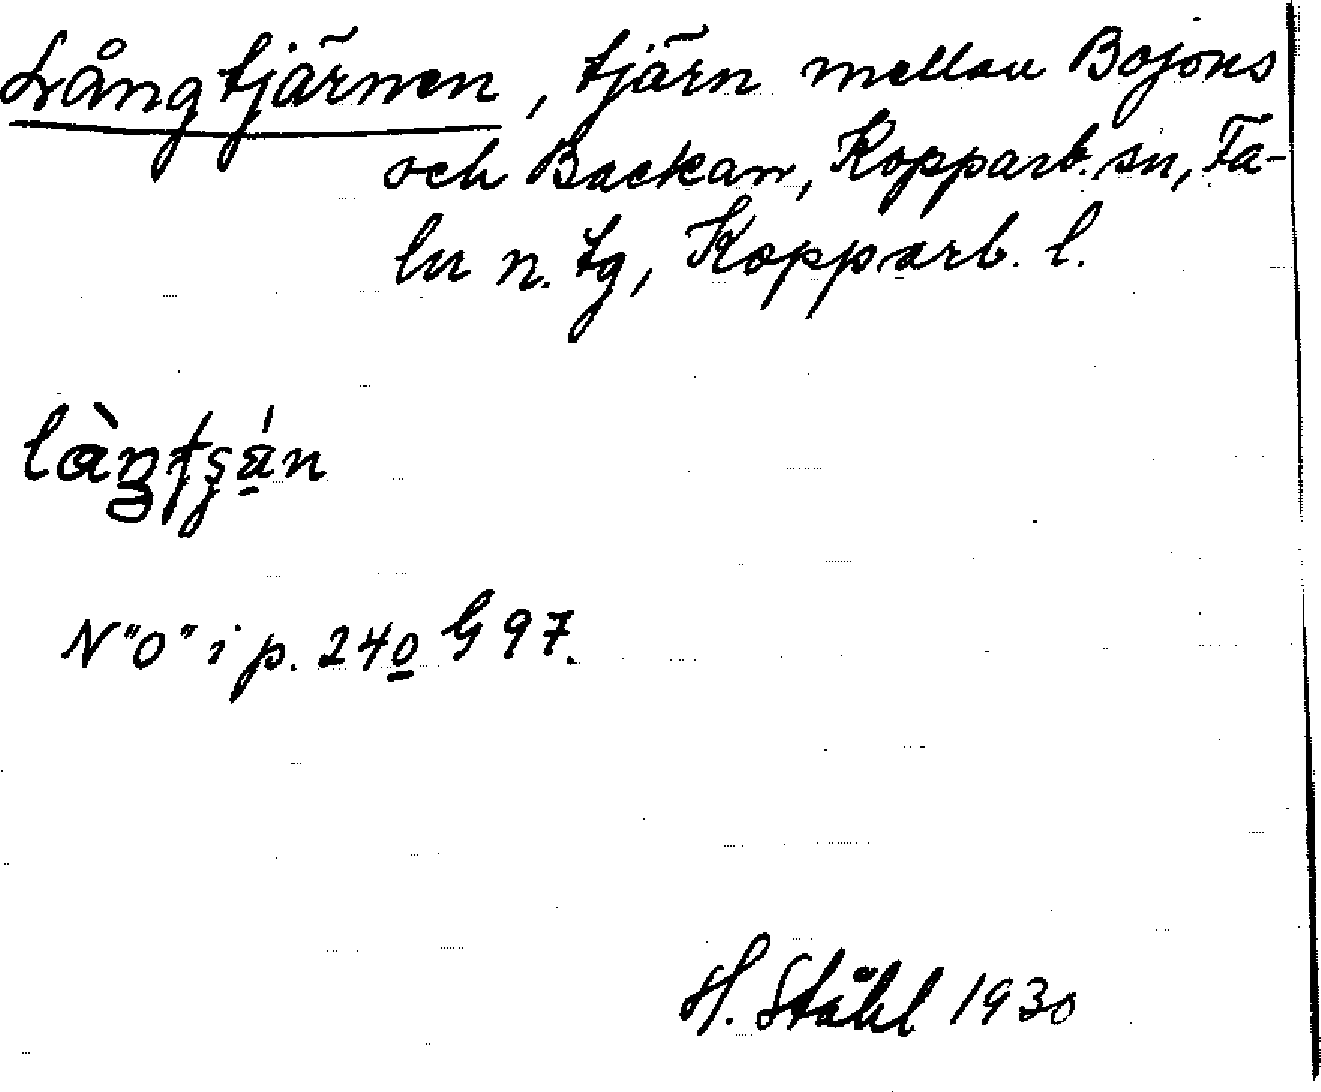 Långtjärnen, tjärn mellan Bojons
och Backan, Kopparb. sn, Fa-
lu n. tg, Kopparb. l.
N "0" i p. 240 G 97.
H. Ståhl 1930